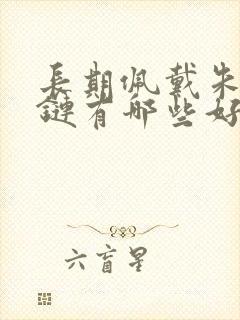 長期佩戴朱
鏈有哪些好
六盲星